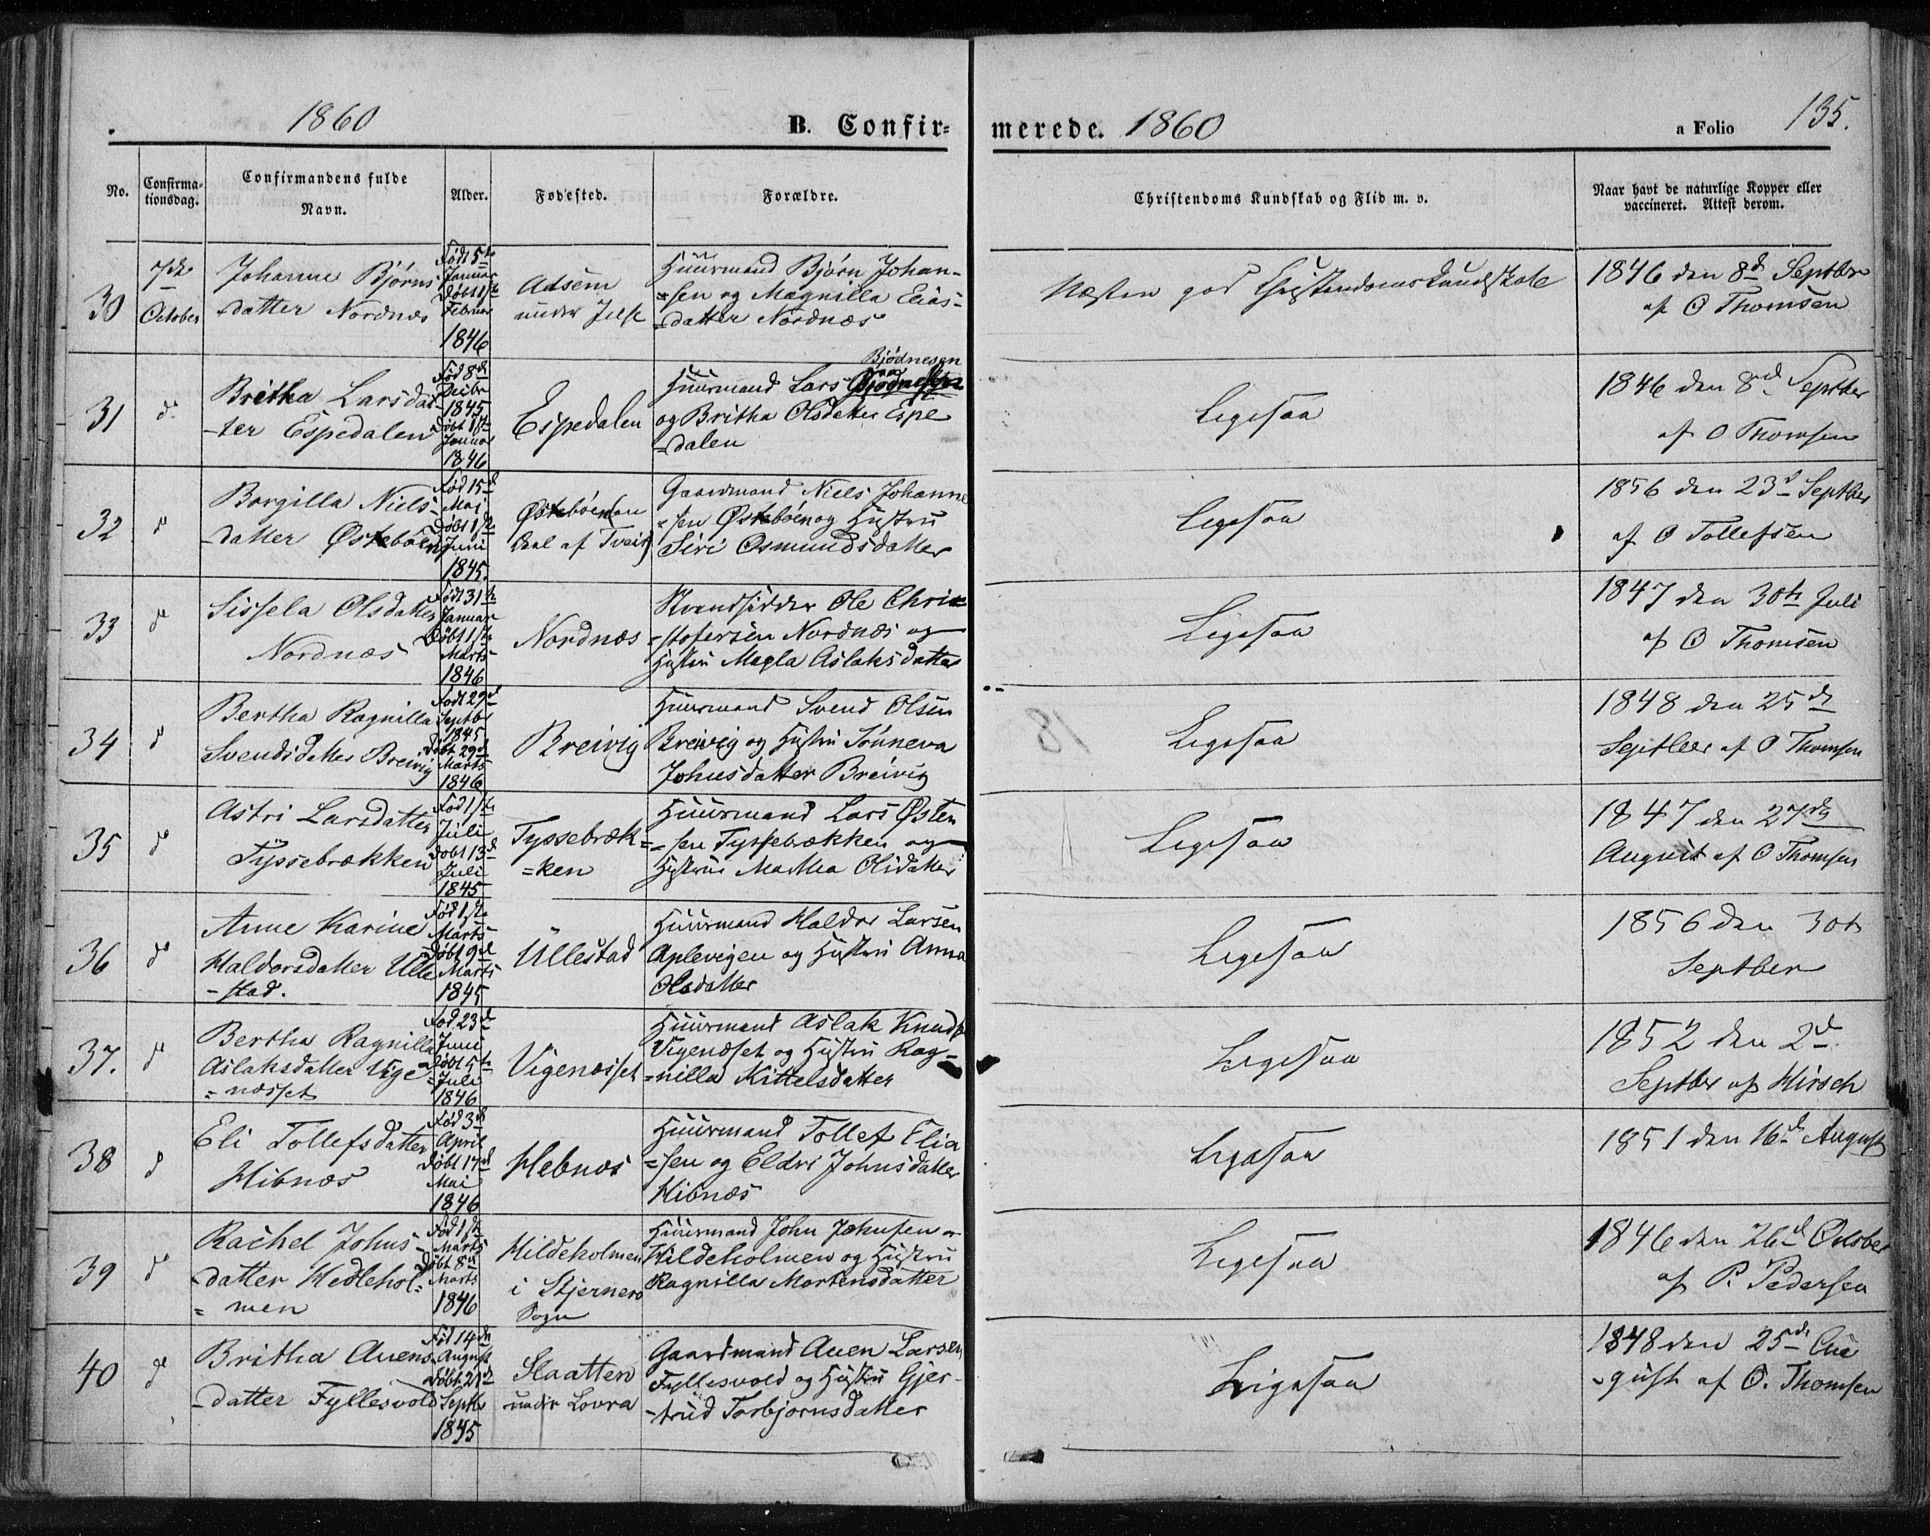 1860 B. Confir- merede. 1860 a Folio 135.
No. Confirma-tionsdag. Confirmandens fulde Navn. Alder. Fødested. Forældre. Christendoms Kundskab og Flid m. v. Naar havt de naturlige Kopper eller vaccineret. Attest derom.
30
7de
October
Johanne Bjørns
-datter Nordnæs
Født 5te
Januar
Døbt 1ste
Februar
1846
Adsem
under Jelse
Huusmand Bjørn Johan-
-sen og Magnilla Elias-
-datter Nordnæs
Næsten god Christendomskundskab
1846 den 8d Septbr
af O Thomsen
31
d.
Britha Larsdat-
-ter Espedalen
Fød 8de
Decbr
1845
Døbt 1ste
Januar
1846
Espedalen
Bjødnesen
Huusmand Lars
og Britha Olsdatter Espe
-dalen
Ligesaa
1846 den 8d Septber
af O Thomsen
32
d
Borgilla Niels-
datter Østebøen
Fød 15d
Mai
Døbt 1ste
Juni
1845.
Østebøen (en
Deel af Tveit)
Gaardmand Niels Johanne
-sen Østebøen og Hustru
Siri Osmundsdatter
Ligesaa
1856 den 23d Septber
af O Tollefsen
33
d
Sissela Olsdatter
Nordnæs
Født 31te
Januar
Døbt 1ste
Marts
1846
Nordnæs
Strandsidder Ole Chri-
-stofersen Nordnæs og
Hustru Magla Aslaksdatter
Ligesaa
1847 den 30te Juli
af O Thomsen
34
d
Bertha Ragnilla
Svendsdatter Breivig
Født 29d
Septbr
1845
Døbt 29d
Marts
1846
Breivig
Huusmand Svend Olsen
Breivig og Hustru Sønneva
Johnsdatter Breivig
Ligesaa
1848 den 25de
Septber af O Thomsen
35
d
Astri Larsdatter
Tyssebrækken
Fød 1ste
Juli
Døbt 13d
Juli
1845
Tyssebræk-
-ken
Huusmand Lars Østen
-sen Tyssebrækken og
Hustru Martha Olsdatter
Ligesaa
1847 den 27de
August af O Thomsen
36
d
Anne Karine
Haldorsdatter Ulle
-stad.
Fød 1ste
Marts
Døbt 9d
Marts
1845
Ullestad
Huusmand Haldor Larsen
Aplevigen og Hustru Anna
Olsdatter
Ligesaa
1856 den 30te
Septber
37.
d
Bertha Ragnilla
Aslaksdatter Vige
-næsset
Fød 23d
Juni
Døbt 5te
Juli
1846
Vigenæsset
Huusmand Aslak Knuds
Vigenæset og Hustru Rag-
-nilla Kittelsdatter
Ligesaa
1852 den 2d
Septbr af Hirsch
38
d
Eli Tollefsdatter
Hibnæs
Fød 3d
April
Døbt 17d
Mai
1846
Hebnæs
Huusmand Tollef Elia
-sen og Eldri Johnsdatter
Hibnæs
Ligesaa
1851 den 16d August
39
d
Rachel Johns-
-datter Hedlehol-
-men
Fød 1ste
Marts
Døbt 8de
Marts
1846
Hildeholmen
i Stjernerø
Sogn
Huusmand John Johnsen
Hildeholmen og Hustru
Ragnilla Mortensdatter
Ligesaa
1846 den 26d October
af P. Pedersen
40
d
Britha Auens
-datter Fyllesvold
Fød 14de
August
Døbt 21d
Septbr
1845
Slaatten
under Lovra
Gaardmand Auen Larsen
Fyllesvold og Hustru Gjer-
-trud Torbjørnsdatter
Ligesaa
1848 den 25de Au
-gust af O. Thomsen